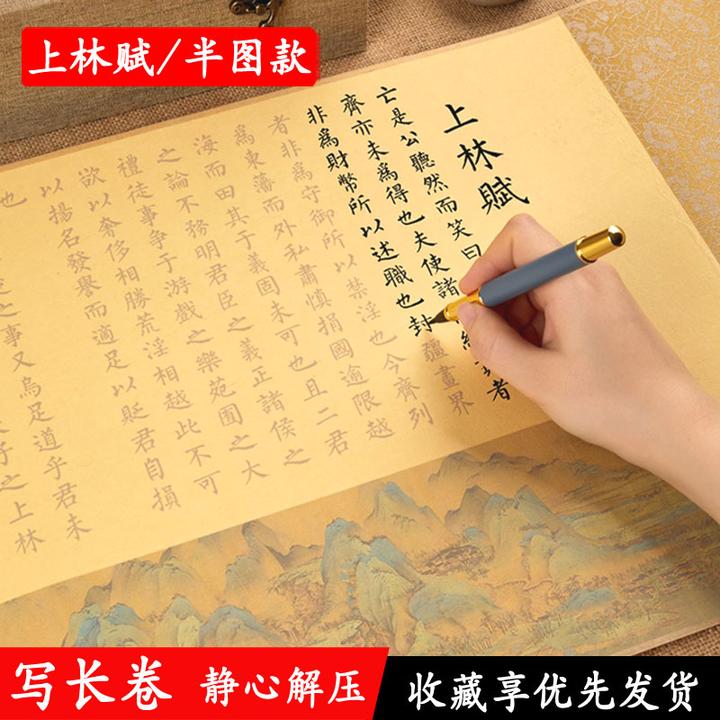 上林赋/半图款
上林賦
亡是公聽然而笑曰
齊亦未為得也夫使諸納者
非為財幣所以述職也封疆畫界
者非為守御所以禁淫也今齊列
為東藩而外私肅慎捐國逾限越
海而田其于義固未可也且二君
之論不務明君臣之義正諸侯之
禮徒事爭于游戲之樂苑囿之大
欲以奢侈相勝荒淫相越此不可
以揚名發譽而適足以貶君自損
也之事又烏足道乎君未
子之上林
写长卷 静心解压 收藏享优先发货